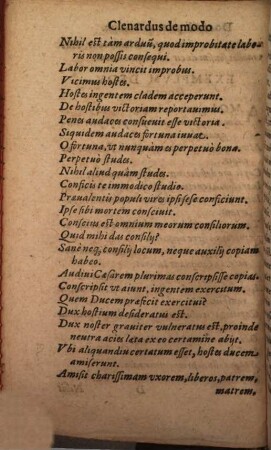 Clenardus de modo
Nihil est tàm arduũ, quod improbitate labo-
ris non possis consequi.
Labor omnia vincit improbus.
Vicimus hostes.
Hostes ingentem cladem acceperunt.
De hostibus victoriam reportauimus.
Penes audaces consueuit esse victoria.
Siquidem audaces fortuna iuuat.
O fortuna, vt nunquàm es perpetuò bona.
Perpetuò studes.
Nihil aliud quàm studes.
Conficis te immodico studio.
Præualentis populi vires ipsi sese conficiunt.
Ipse sibi mortem consciuit.
Conscius est omnium meorum consiliorum.
Quid mihi das consilij?
Sanè neq; consilij locum, neque auxilij copiam
habeo.
Audiui Cæsarem plurimas conscripsisse copias.
Conscripsit vt aiunt, ingentem exercitum.
Quem Ducem præfecit exercitui?
Dux hostium desideratus est.
Dux noster grauiter vulneratus est, proinde
neutra acies læta ex eo certamine abijt.
Vbi aliquandiu certatum esset, hostes ducem
amiserunt.
Amisit charissimam vxorem, liberos, patrem,
matrem,